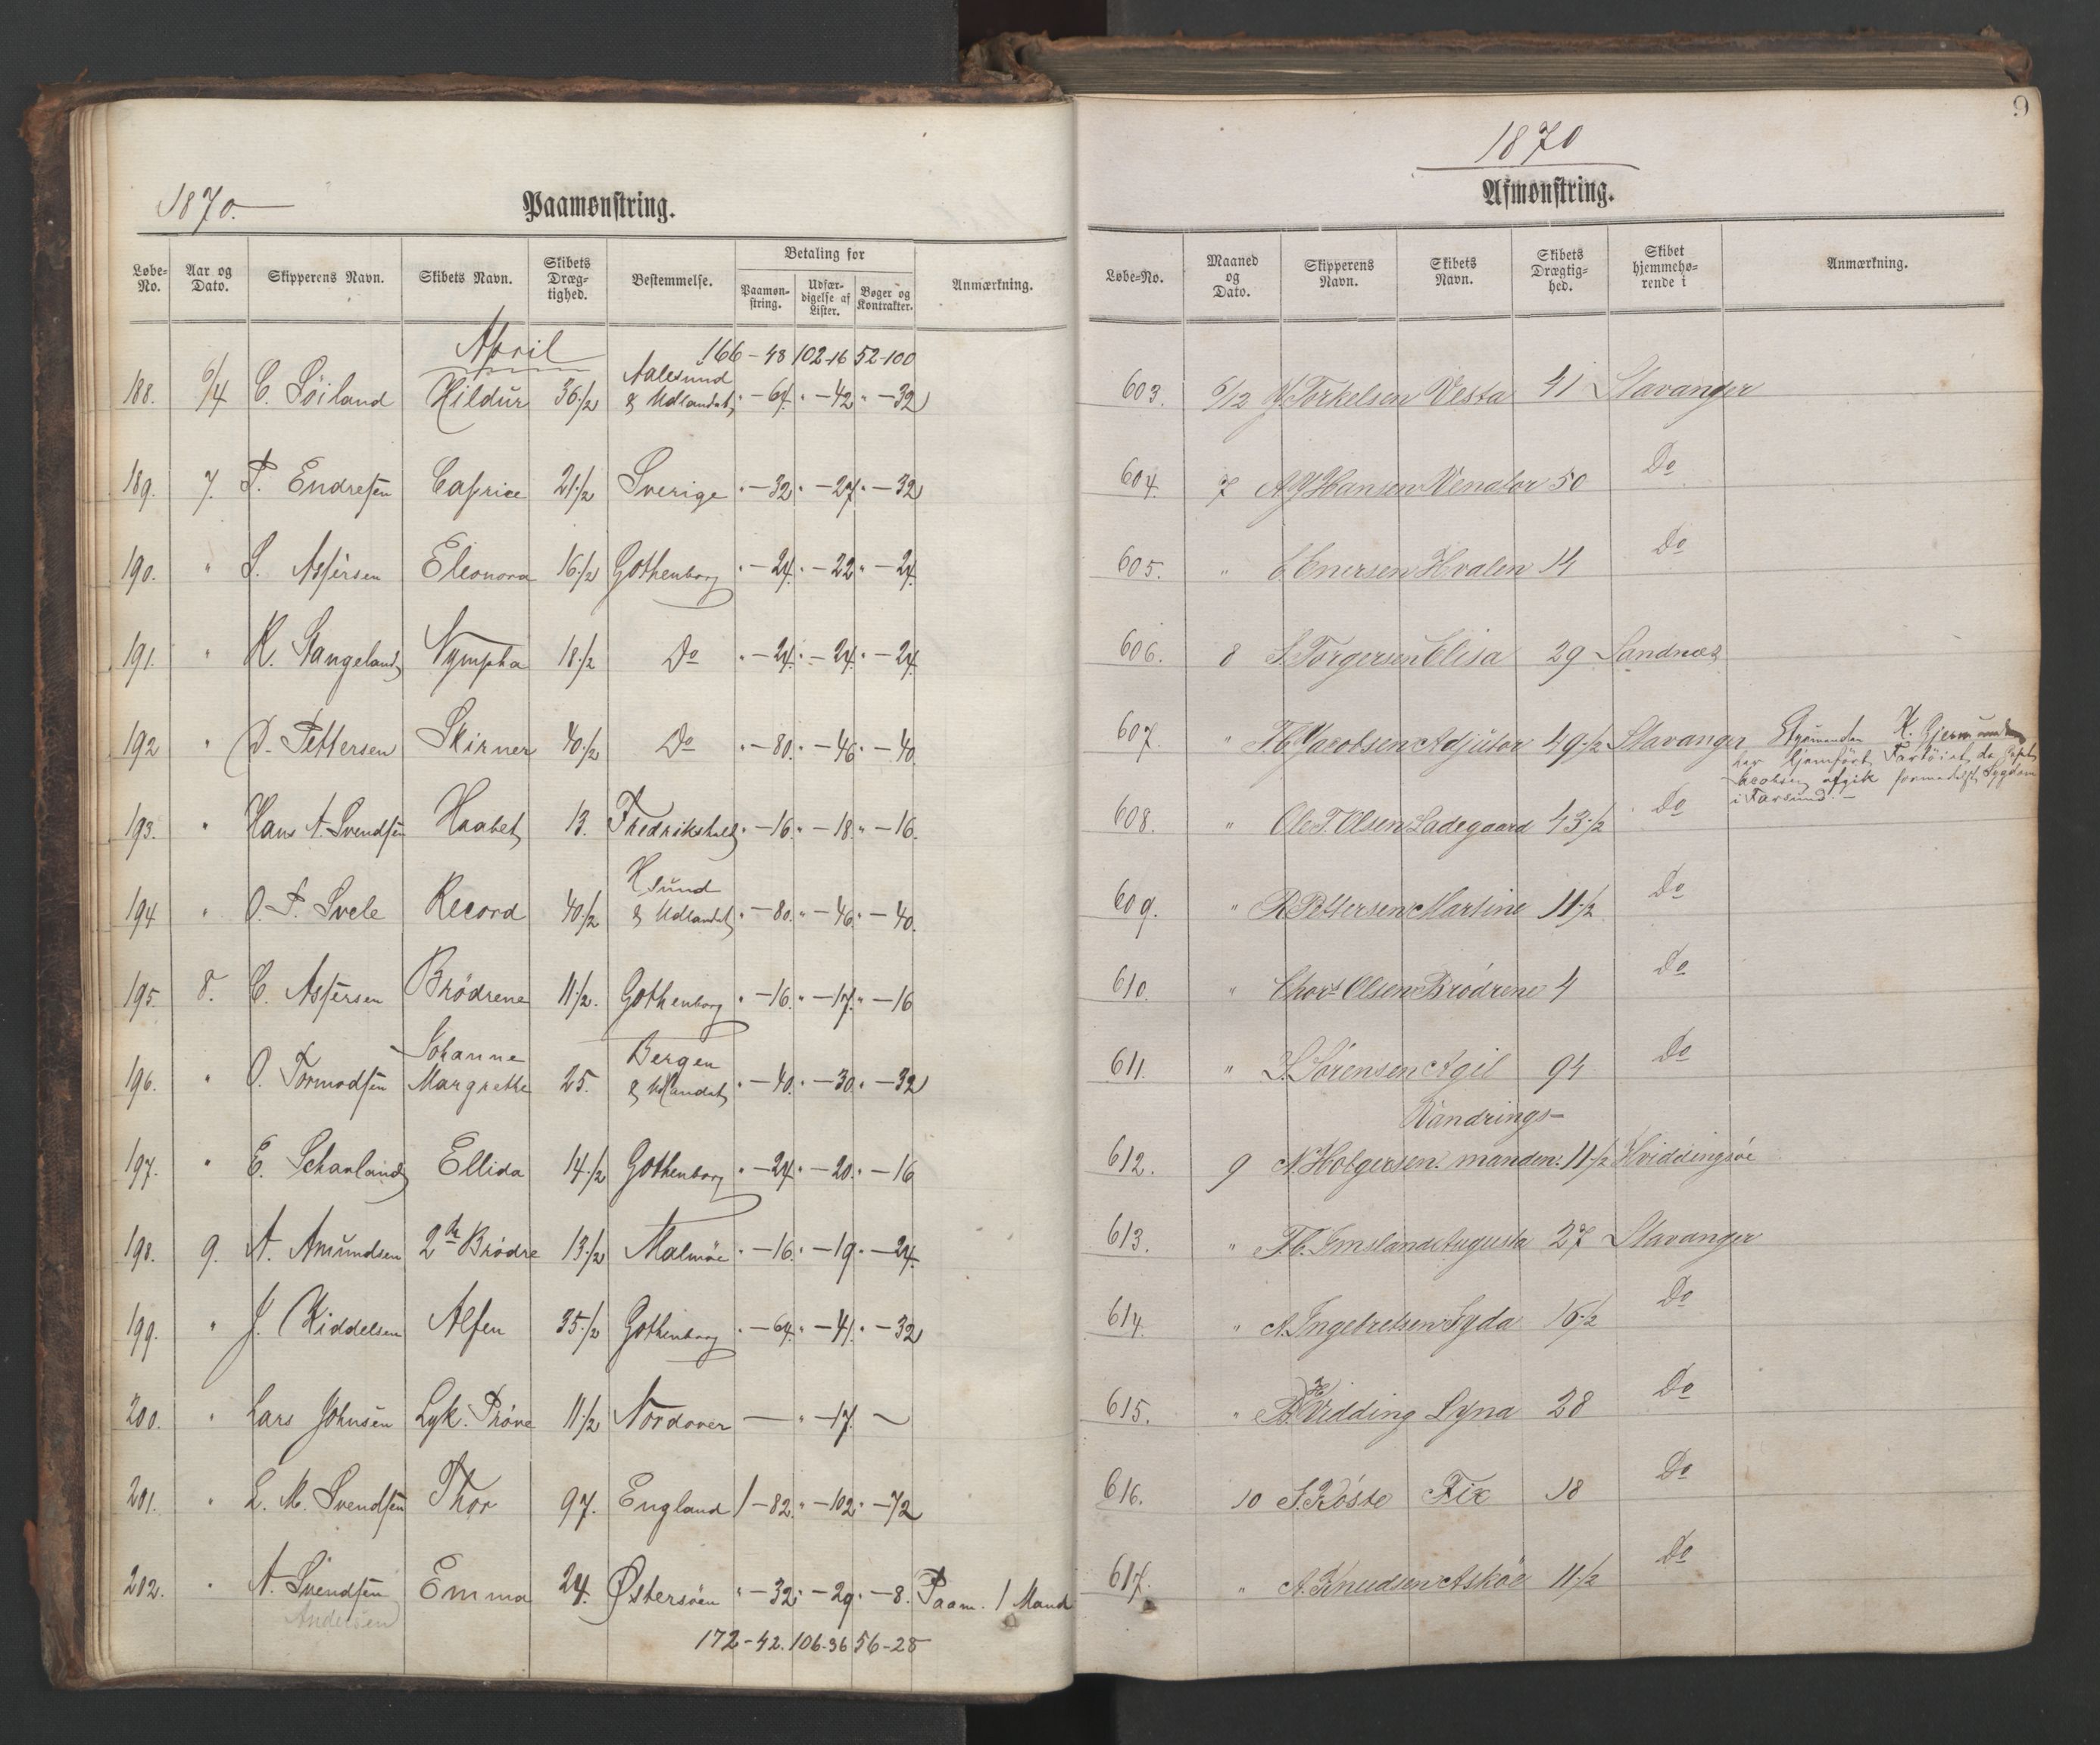 1870.
Paamønstring.
Løbe-No. Aar og Dato. Skipperens Navn. Skibets Navn. Skibets Dræg-tighed. Bestemmelse. Betaling for Paamøn-string. Udfær-digelse af Lister. Bøger og Kontrakter. Anmærkning.
April 166-48 102-16 52-100
188. 6/4 C. Söiland Hildur 36 1/2 Aalesund & Udlandet " - 64. " - 42 " - 32
189. 7. P. Endresen Caprice 21 1/2 Sverige " - 32 " - 27. " - 32
190. " S. Aspersen Eleonora 16 1/2 Gothenborg " - 24. " - 22 " - 24.
191. " K. Stangeland Nympha 18 1/2 Do " - 24. " - 24. " - 24.
192 " D. Pettersen Skirner 40 1/2 Do " - 80. " - 46 " - 40.
193. " Hans A. Svendsen Haabet 13. Fredrikshald " - 16. " - 18. " - 16.
194 " O. P. Svele Record 40 1/2 H sund & Udlandet " - 80. " - 46. " - 40.
195. 8. C. Aspersen Brödrene 11 1/2. Gothenborg " - 16. " - 17. " - 16
196. " O. Tormodsen Johanne Margrethe 25. Bergen & Udlandet " - 40. " - 30. " - 32
197. " E. Scharland Ellida 14 1/2 Gothenborg " - 24. " - 20. " - 16
198. 9. A. Amundsen 2de Brödre 13 1/2 Malmöe " - 16. " - 19. " - 24.
199. " J. Kiddelsen Alfen 35 1/2 Gothenborg " - 64. " - 41. " - 32
200. " Lars Johnsen Lyk. Pröve 11 1/2 Nordover — " - 17. —
201. " L. M. Svendsen Thor 97. England 1 - 82. " - 102. " - 72
202. " A. Svendsen Emma 24. Østersöen " - 32. " - 29. " - 8. Paam. 1 Mand
Andersen
172-42. 106-36 56-28
9
1870
Afmønstring.
Løbe-No. Maaned og Dato. Skipperens Navn. Skibets Navn. Skibets Drægtig-hed. Skibet hjemmehø-rende i Anmærkning.
603. 6/12 Torkelsen Vesta 41 Stavanger
604. 7 Hansen Venator 50 Do
605. " Enersen Hvalen 14 Do
606. 8 S. Torgersen Elisa 29 Sandnæs
607. " Jacobsen Adjutor 49 1/2 Stavanger Styrmanden K.
har hjemført Fartöiet da
Jacobsen afgik formedelst Sygdom
i Farsund. —
608. " Ole T. Olsen Ladegaard 43 1/2 Do
609. " R Pettersen Martine 11 1/2 Do
610. " Olsen Brödrene 4 Do
611. " Sörensen Agil 94 Do
612. 9 N. Holgersen Vandrings-manden 11 1/2 Hviddingsöe
613. " Imsland Augusta 27 Stavanger
614. " A. Ingebretsen Syda 16 1/2 Do
615. " Vidding Lyna 28 Do
616. 10 S. Röste Fix 18 Do
617. " A. Knudsen Asköe 11 1/2 Do